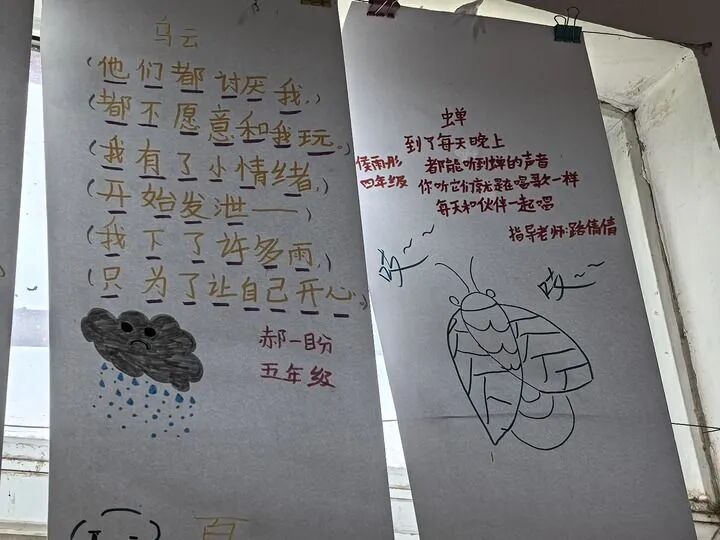 乌云
(他们都讨厌我,)
(都不愿意和我玩。)
(我有了小情绪,)
(开始发泄——)
(我下了许多雨,)
(只为了让自己开心。)
郝一盼
五年级
蝉
到了每天晚上
侯雨彤
都能听到蝉的声音
四年级
你听它们就是在唱歌一样
每天和伙伴一起唱
指导老师:路倩倩
吱~~